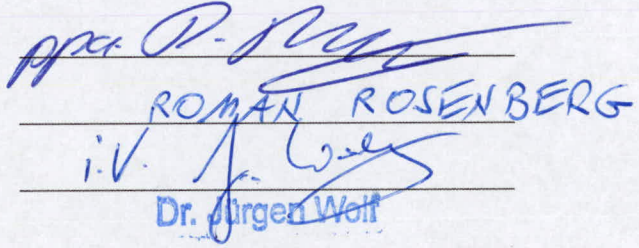 ppa. R.
ROMAN ROSENBERG
i.V. J. Wolf
Dr. Jürgen Wolf